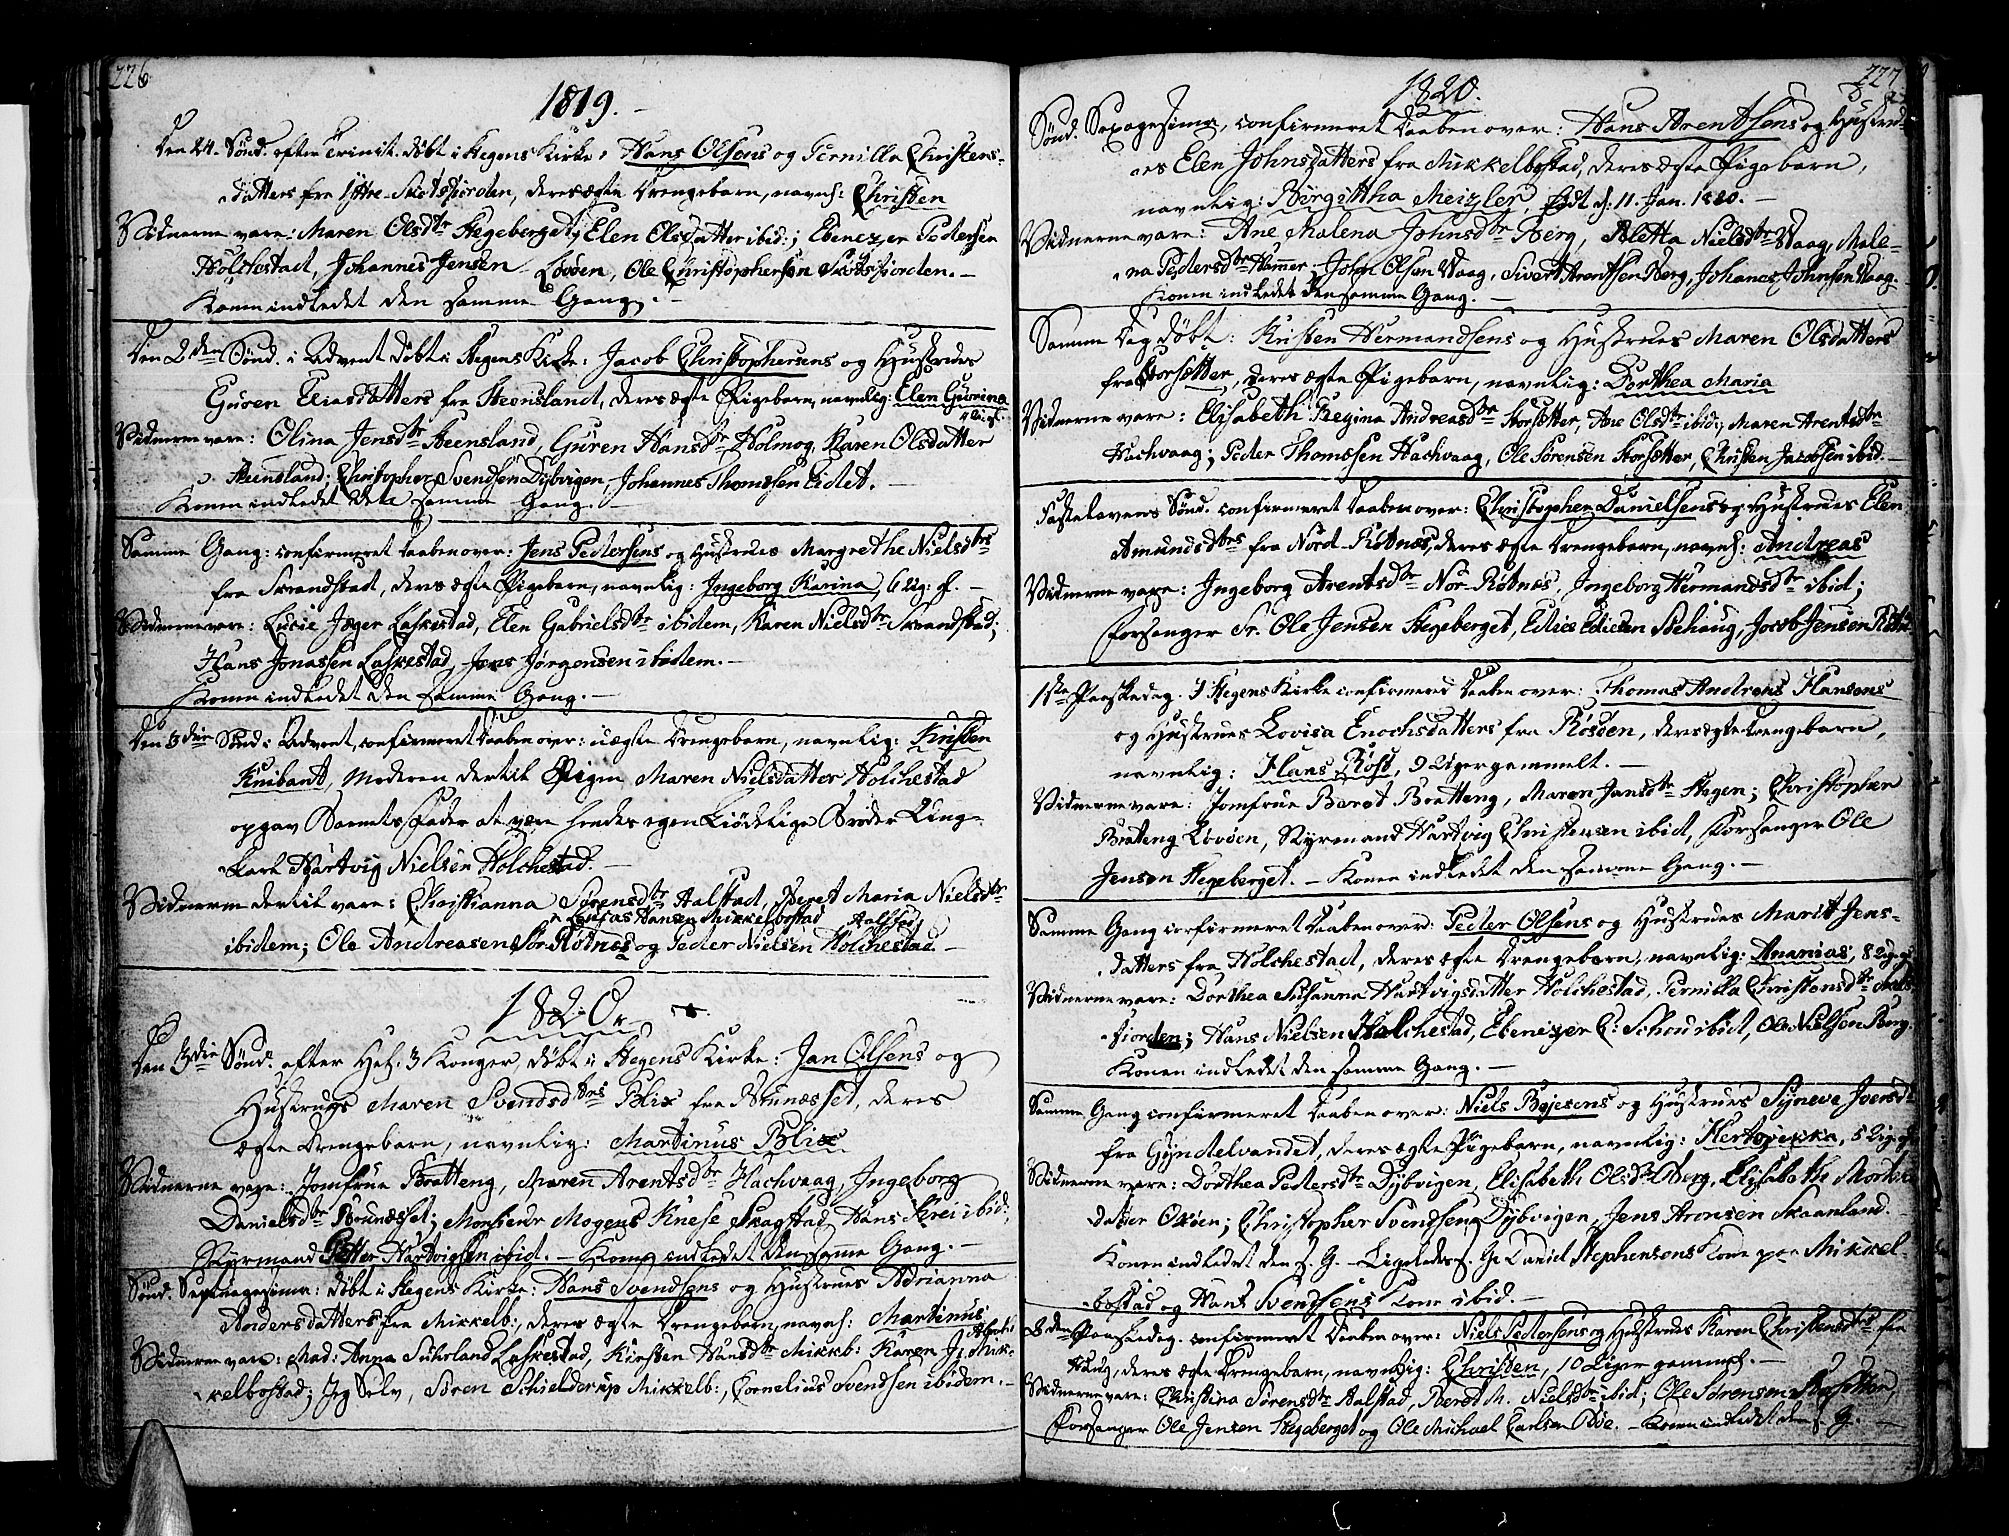 226
1819.
Den 24. Sønd. efter Trinit. døbt i Stegens Kirke: Hans Olsens og Pernilla Christens-
datters fra Skotsfiorden, deres ægte Drengebarn, navnl: Christen
Vidnerne vare: Maren Olsdtr Stegeberget, Elen Olsdatter ibid:; Ebenezer Pedersen
Holchestad, Johannes Jensen Lovøen, Ole Christophersen Skotsfiorden. -
Konen indledet den samme Gang. -
Den 2den Sønd. i Advent døbt i Stegens Kirke: Jacob Christophersens og Hustrues
Guren Eliasdatters fra Steensland, deres ægte Pigebarn, navnlig: Elen Gurina
Vidnerne vare: Olina Jensdtr Steensland, Guren Hansdtr Holmog, Karen Olsdatter
Steensland; Christopher Svendsen Dybvigen, Johannes Thomesen Eidet. -
Konen indledet dette samme Gang. -
Samme Gang: confirmeret Daaben over: Jens Pedersens og Hustrues Margrethe Nielsdtrs
fra Skrandstad, deres ægte Pigebarn, navnlig: Ingeborg Karina, 6 Ug: g. -
Vidnerne vare: Lucie Jæger Laskestad, Elen Gabrielsdtr ibidem, Karen Nielsdtr Skrandstad;
Hans Jonassen Laskestad, Jens Jørgensen ibidem. -
Konen indledet den samme Gang. -
Den 3die Sønd: i Advent, confirmeret Daaben over: uægte Drengebarn, navnlig: Kristen
Knibant, Moderen dertil Pigen Maren Nielsdatter Holchestad
opgav Barnets Fader at være hendes egen kiødelige Broder Ung-
karl Hartvig Nielsen Holchestad. -
Vidnerne dertil vare: Christianna Sørensdtr Aalstad, Beret Maria Nielsdtr
Lucas Hansen Mikkelbostad Aalstad
ibidem; Ole Andreasen Sør-Røtnes og Peder Nielsen Holchestad -
1820.
Den 3die Sønd. efter Hel. 3 Konger, døbt i Stegens Kirke: Jan Olsens og
Hustrues Maren Svendsdtrs Blix fra Brunæsset, deres
ægte Drengebarn, navnlig: Martinus Blix
Vidnerne vare: Jomfrue Bratteng, Maren Arentsdtr Hachvaag, Ingeborg
Danielsdtr Brunæsset; Monsieur Mogens Knese Skagstad, Hans Krei ibid:,
Styrmand Petter Hartvigsen ibid. - Konen indledet den samme Gang. -
Sønd. Septuagesima: døbt i Stegens Kirke: Hans Svendsens og Hustrues Adrianna
Andersdatters fra Mikkelb:, deres ægte Drengebarn, navnl: Martinus
Vidnerne vare: Mad: Anna Suhrland Laskestad, Kirsten Hansdtr Mikkb: Karen Js: Mik-
kelbostad; Jeg Selv, Søren Schielderup Mikkelb:, Cornelius Svendsen ibidem. -
227
1820.
Sønd. Sexagesima, confirmeret Daaben over: Hans Arentsens og Hustru-
es Elen Johnsdatters fra Mikkelbostad, deres ægte Pigebarn,
navnlig: Birgittha Meizler, født d. 11. Jan. 1820. -
Vidnerne vare: Ane Malena Johnsdtr Berg, Aletta Nielsdtr Vaag, Male-
na Pedersdtr Hammer, John Olsen Vaag, Sivert Arentsen Berg, Johanes Johnsen Vaag.
Konen indledet den samme Gang. -
Samme Dag døbt: Kristen Hermandsens og Hustrues Maren Olsdatters
fra Storsætter, deres ægte Pigebarn, navnlig: Dorthea Maria
Vidnerne vare: Elisabeth Regina Andreasdtr Storsetter, Ane Olsdtr ibid:, Maren Arentsdtr
Hachvaag; Peder Thomesen Hachvaag, Ole Sørensen Storsætter, Christen Jacobsen ibid. -
Fastelavens Sønd. confirmeret Daaben over: Christopher Danielsens og Hustrues Elen
Amundsdtrs fra Nord-Røtnes, deres ægte Drengebarn, navnl: Andreas
Vidnerne vare: Ingeborg Arentsdtr Nor-Røtnes, Ingeborg Hermandsdtr ibid;
Forsanger Sr. Ole Jensen Stegeberget, Edies Ediesen Stehaug, Jacob Jensen Røtn
1ste Paaskedag. I Stegens Kirke confirmered Daaben over: Thomas Andreas Hansens
og Hustrues Lovisa Enochsdatters fra Røsøen, deres ægte Drengebarn,
navnlig: Hans Rost, 9 Uger gammelt. -
Vidnerne vare: Jomfrue Beret Bratteng, Maren Jansdtr Stegen; Christopher
Bratteng Lovøen, Styrmand Hartvig Christensen ibid, Forsanger Ole
Jensen Stegeberget. - Konen indledet den samme Gang. -
Samme Gang confirmeret Daaben over: Peder Olsens og Hustrues Marit Jens-
datters fra Holchestad, deres ægte Drengebarn, navnlig: Ananias, 8 Uger g
Vidnerne vare: Dorthea Susanna Hartvigsdatter Holchestad, Pernilla Christensdtr Skots-
fiorden; Hans Nielsen Holchestad, Ebenezer P: Schou ibid, Ole Nielsen Berg.
Konen indledet den samme Gang. -
Samme Gang confirmeret Daaben over: Niels Bojesens og Hustrues Syneva Iversdtr
fra Gyndelvandet, deres ægte Pigebarn, navnlig: Hertovikka, 5 Uger g
Vidnerne vare: Dorthea Pedersdtr Dybvigen, Elisabeth Olsdtr Berg, Elisabeth Morten
datter Oxøen; Christopher Svendsen Dybvigen, Jens Aronsen Skaanland.
Konen indledet den s. G. - Ligeledes s. G. David Stephensens Kone paa Mikkel-
bostad og Hans Svendsens Kone ibid. -
2den Paaskedag. confirmeret Daaben over: Niels Pedersens og Hustrues Karen Christensdtrs fra
Haug, deres ægte Drengebarn, navnlig: Christen, 10 Uger gammel. -
Vidnerne vare: Christina Sørensdtr Aalstad, Beret M. Nielsdtr ibid; Ole Sørensen Storsetter,
Forsanger Ole Jensen Stegeberget og Ole Michael Carlsen Bøe. - Konen indledet den s. G.